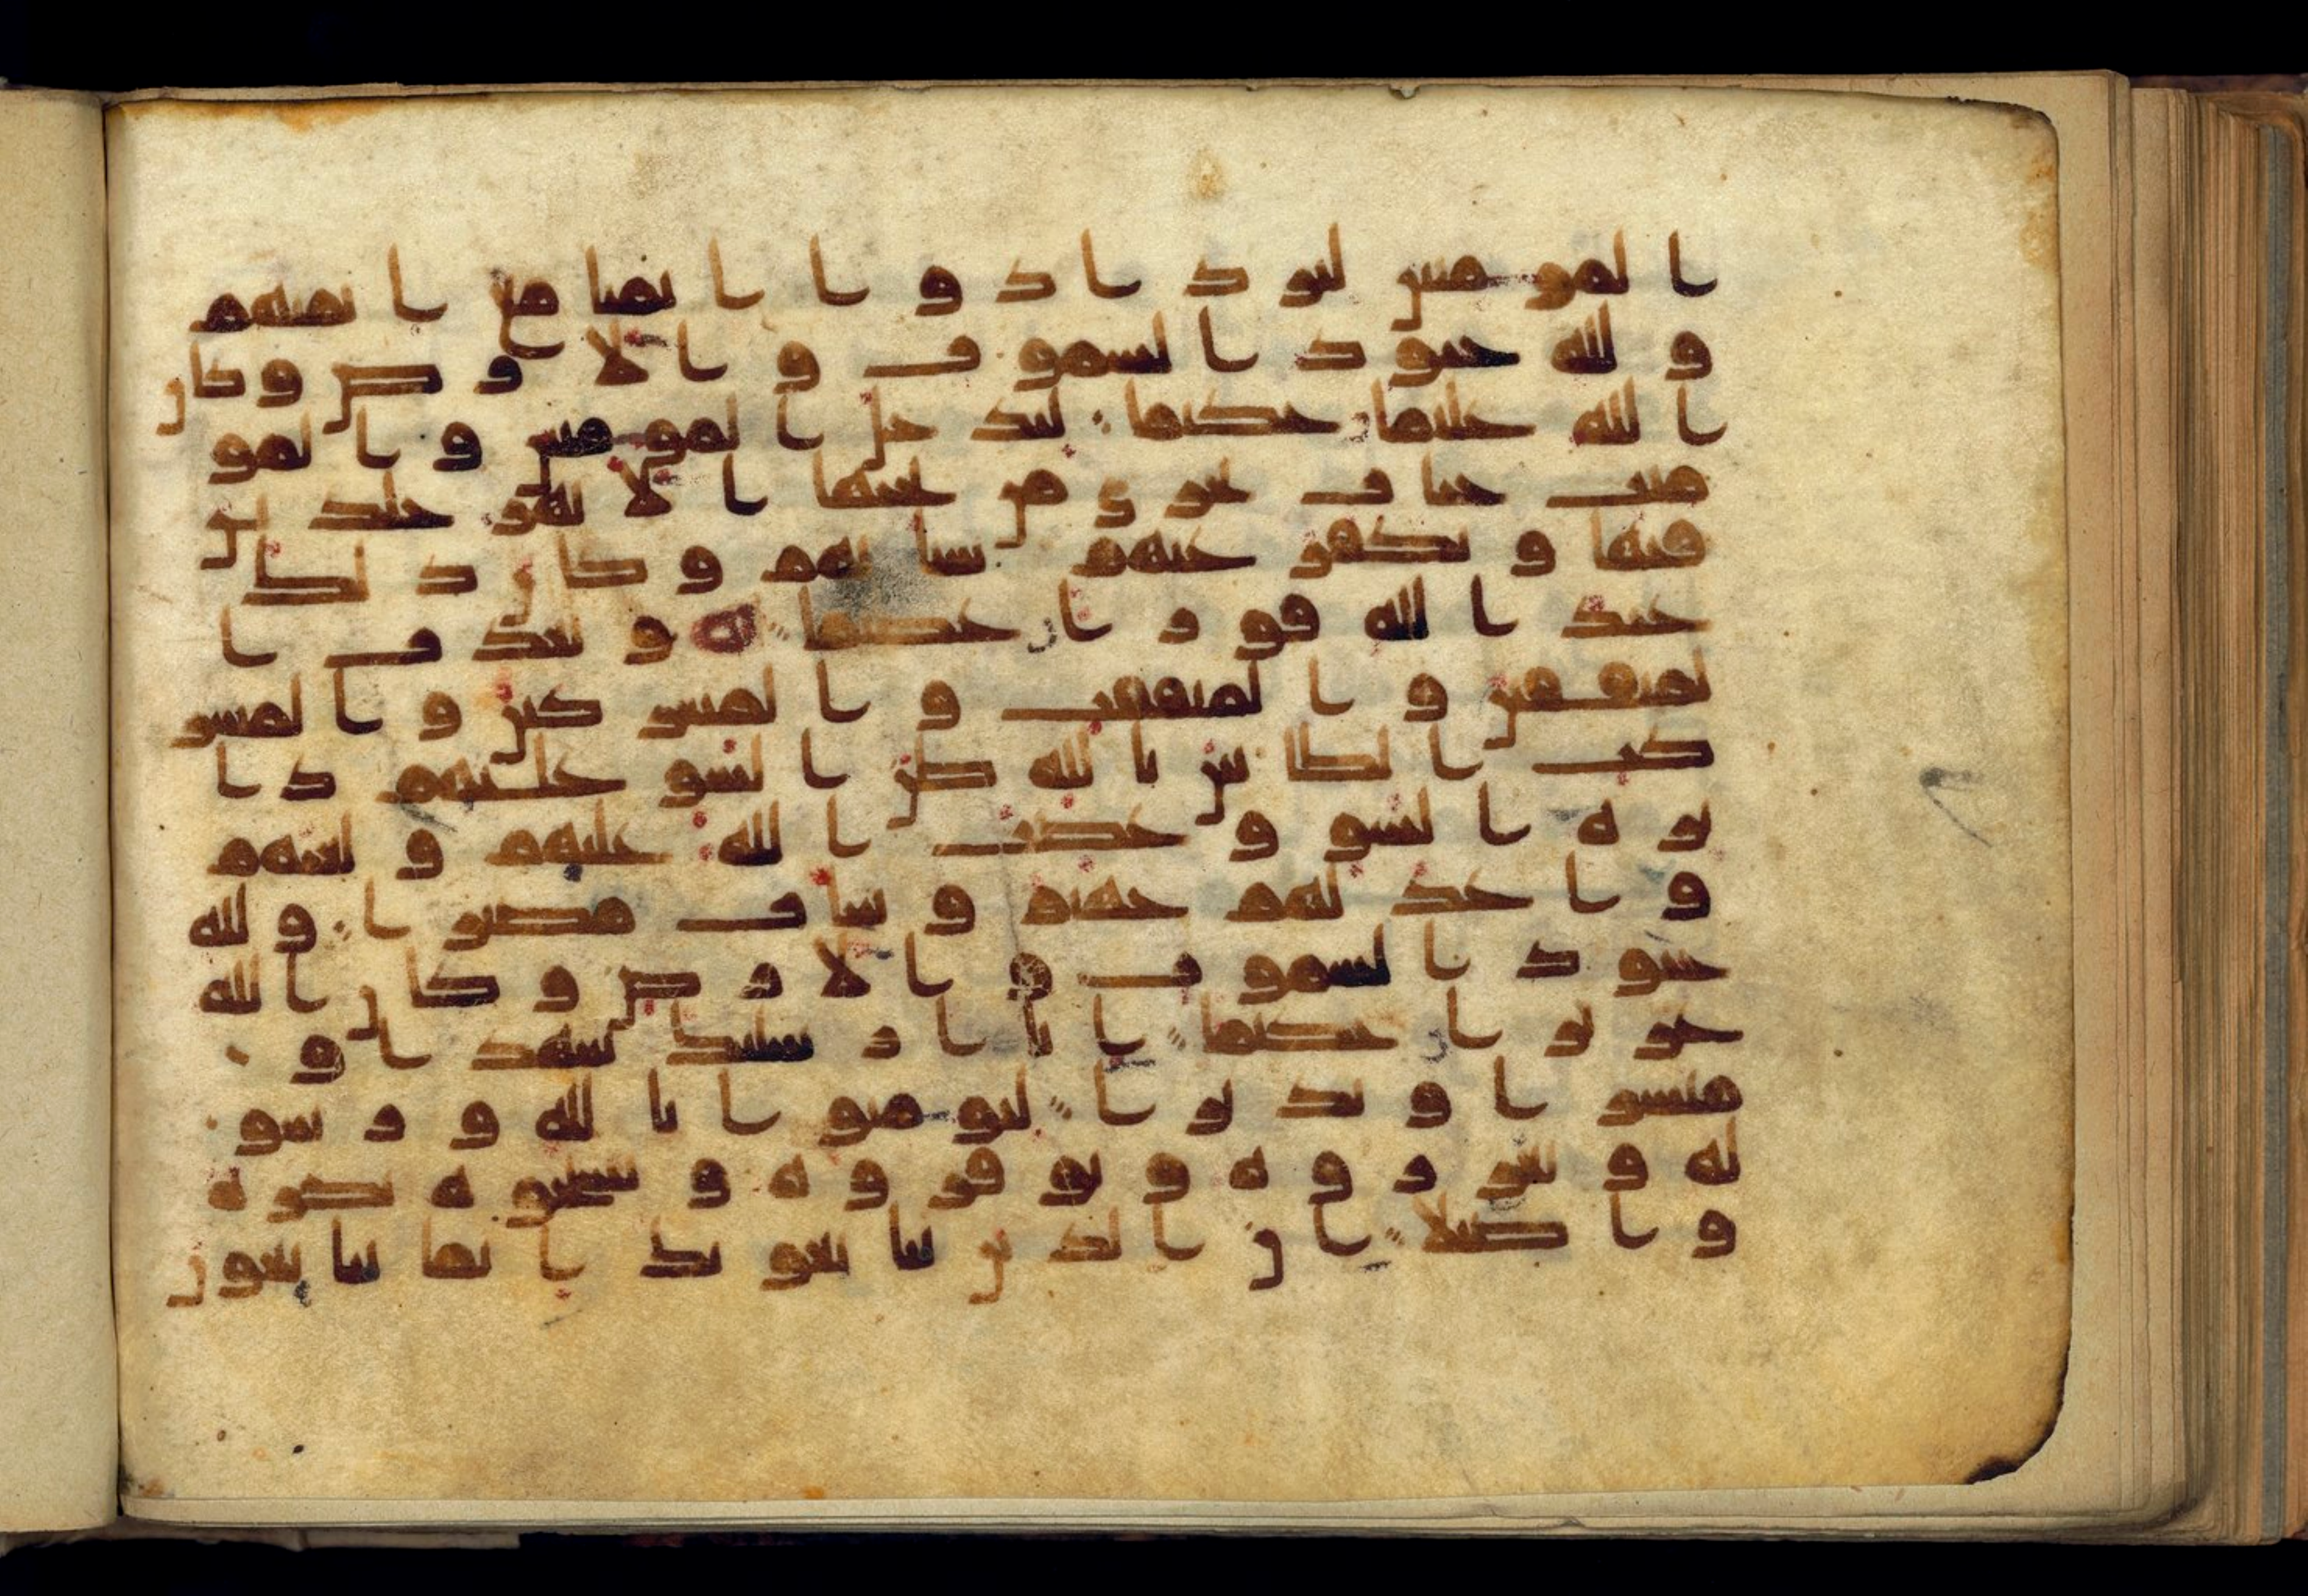 المومنين ليزدادوا ايمنا مع ايمنهم
ولله جنود السموت والارض وكان
الله عليما حكيما ليدخل المومنين والمو
منت جنات تجري من تحتها الانهر خلدين
فيها ويكفر عنهم سياتهم وكان ذلك
عند الله فوزا عظيما ه ويعذب ا
لمنفقين والمنفقت والمشركين والمشر
كت الظانين بالله ظن السو عليهم دا
يره السو وغضب الله عليهم ولعنهم
واعد لهم جهنم وسات مصيرا ولله
جنود السموت والارض وكان الله
عزيزا حكيما انا ارسلنك شهدا و
مبشرا ونذيرا ليومنوا بالله ورسو
له وتعزروه وتوقروه وتسبحوه بكره
واصيلا ان الذين يبايعونك انما يبايعون